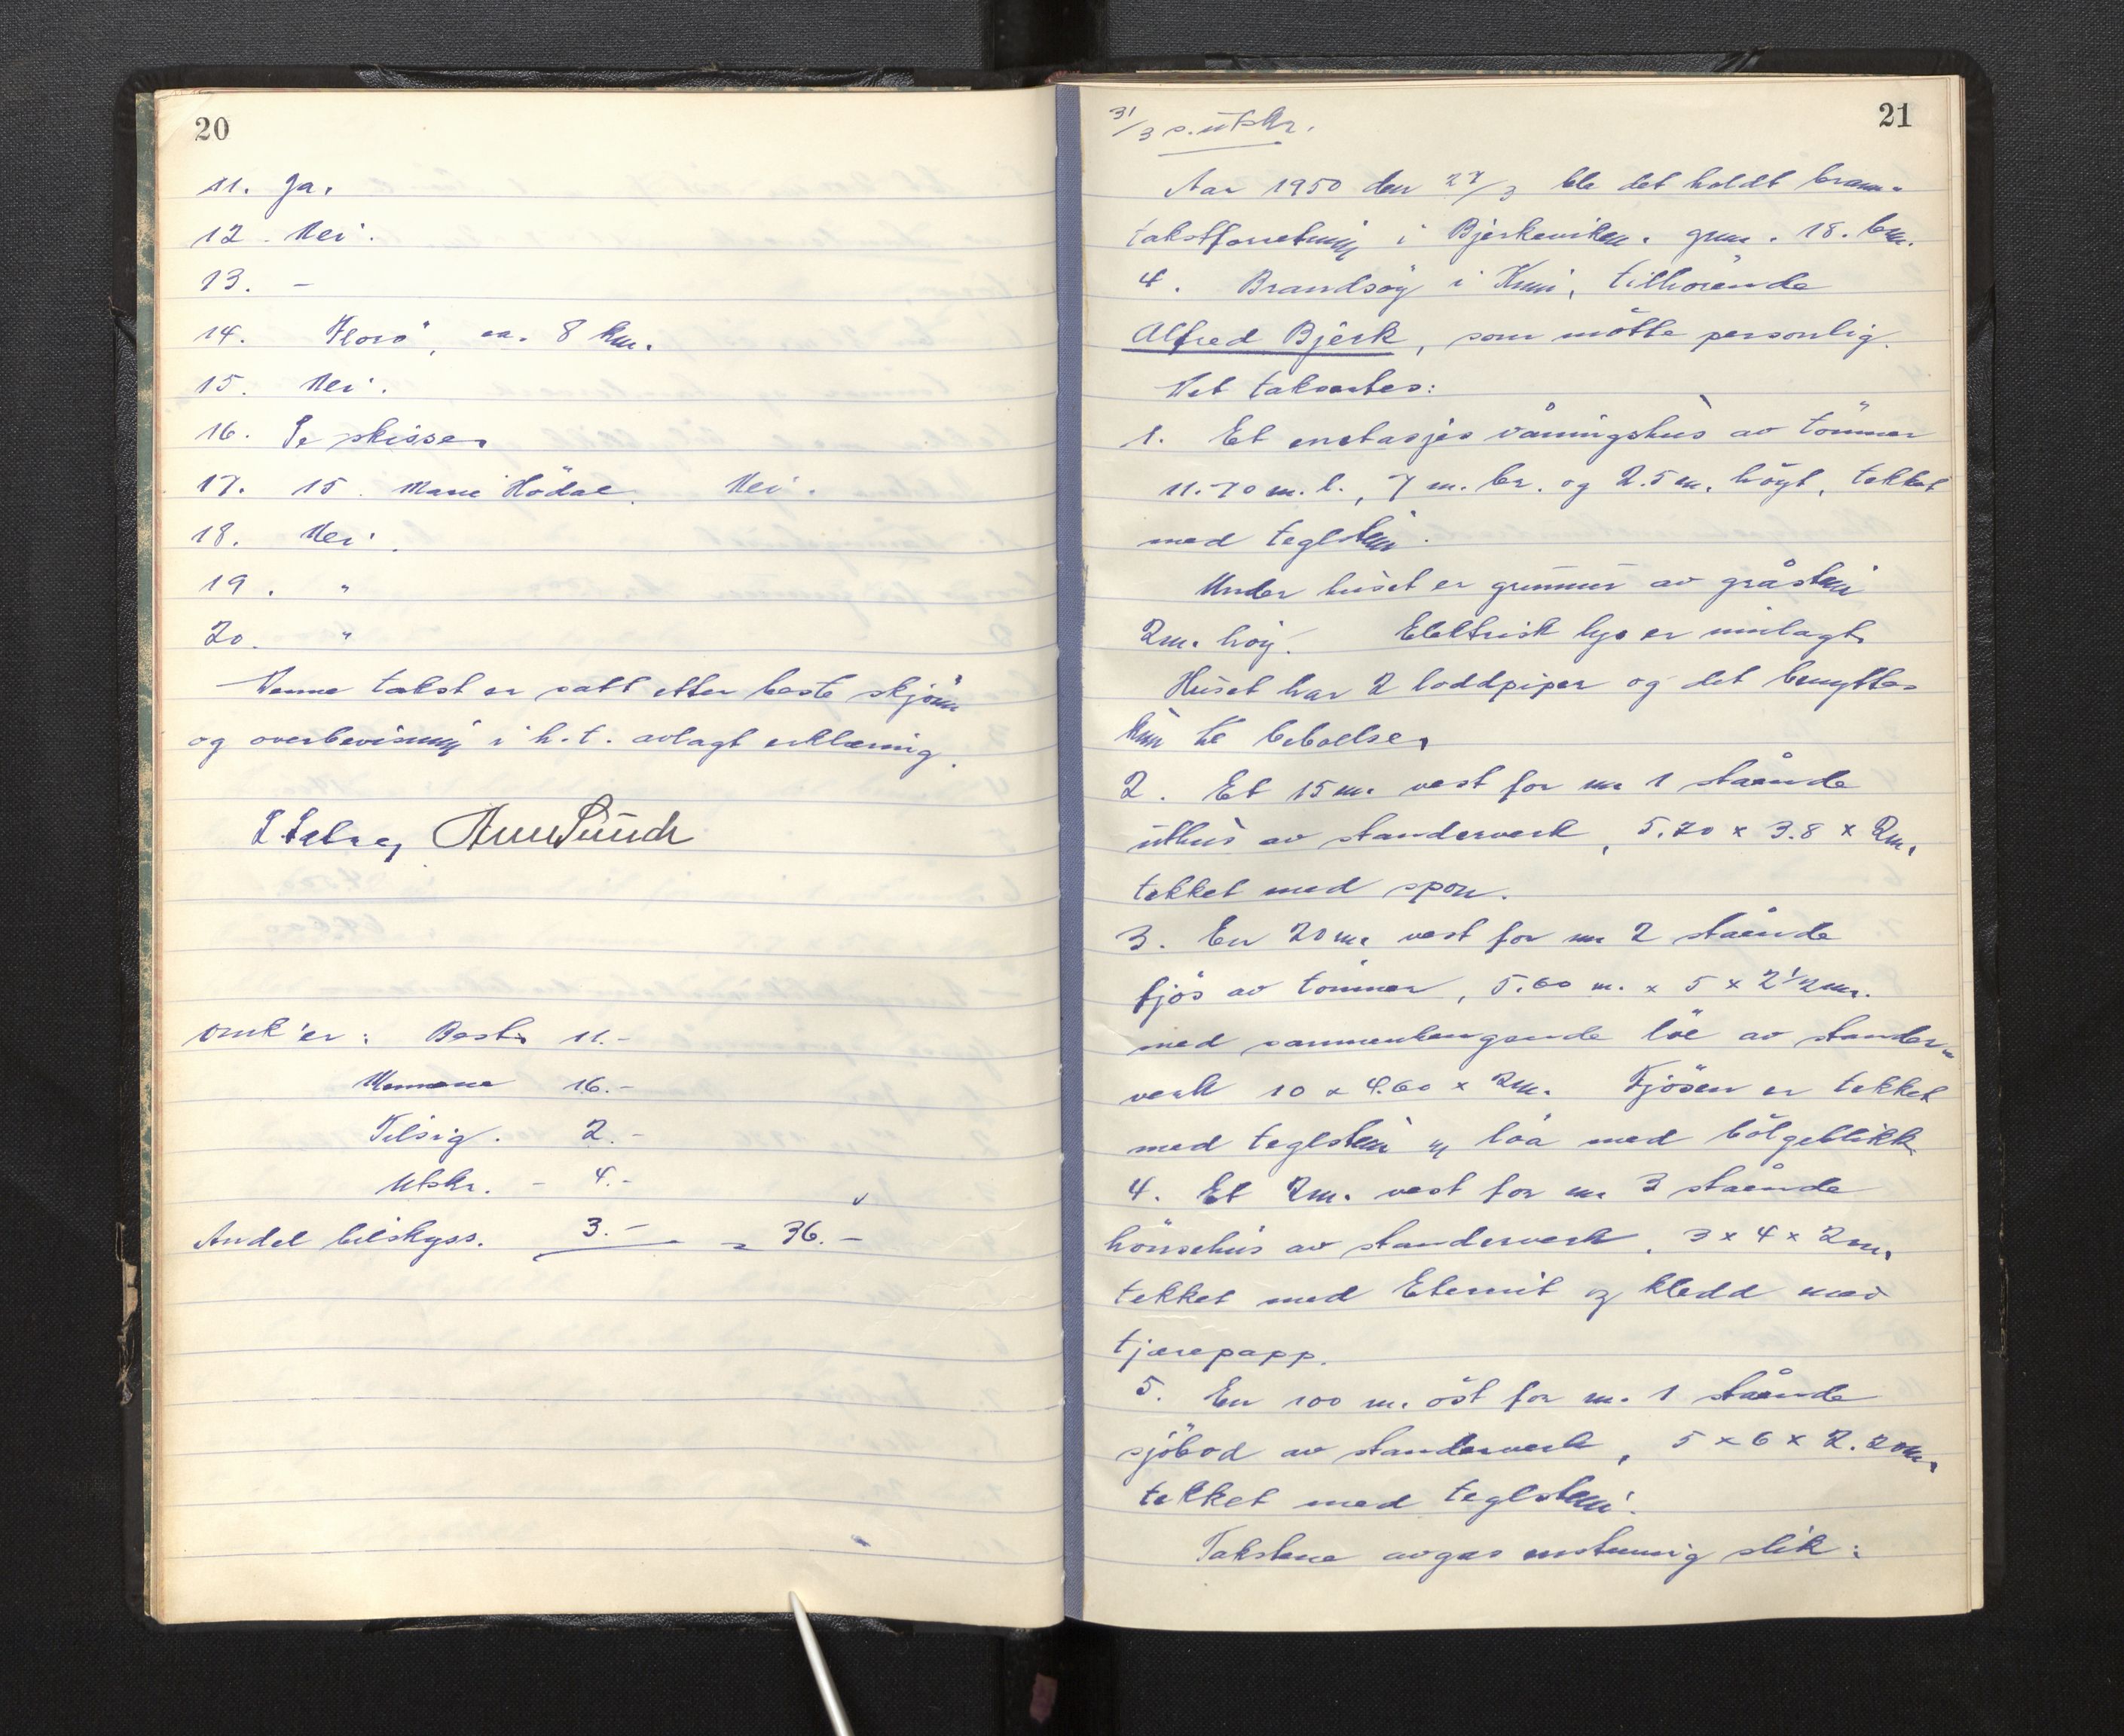 20
11. Ja.
12. Nei.
13. –
14. Florö, ca. 8 km.
15. Nei.
16. Se skisse.
17. 15. Marie Hödal. Nei.
18. Nei.
19. "
20. "
Denne takst er satt etter beste skjönn
og overbevisning i h.t. avlagt erklæring.
Omk'er: Best. 11.-
Mennene 16.-
Tilsig. 2.-
Utskr. - 4.-
Andel bilskyss. 3.- = 36.-
21
31/3 s. utskr.
Aar 1950 den 27/3 ble det holdt brann-
takstforretning i Bjerkeviken. gnr. 18. bnr.
4. Brandsöy i Kinn, tilhörende
Alfred Bjerk, som mötte personlig.
Det taksertes:
1. Et enetasjes våningshus av tömmer
11.70 m. l., 7 m. br. og 2.5 m. högt, tekket
med teglstein.
Under huset er grunnmur av gråstein
2m. höy. Elektrisk lys er innlagt.
Huset har 2 loddpiper og det benyttes
kun til beboelse.
2. Et 15 m. vest for nr 1 stående
uthus av standerverk, 5.70 x 3.8 x 2m.
tekket med spon.
3. En 20 m. vest for nr 2 stående
fjös av tömmer, 5.60 m. x 5 x 2 1/2 m.
med sammenhengende löe av stander-
verk 10 x 4.60 x 2m. Fjösen er tekket
med teglstein og löa med bölgeblikk.
4. Et 2m. vest for nr 3 stående
hönsehus av standerverk, 3 x 4 x 2m.
tekket med Eternit og kledd med
tjærepapp.
5. En 100 m. öst for nr. 1 stående
sjöbod av standerverk, 5 x 6 x 2.20m.
tekket med teglstein.
Takstene avgas enstemmig slik: